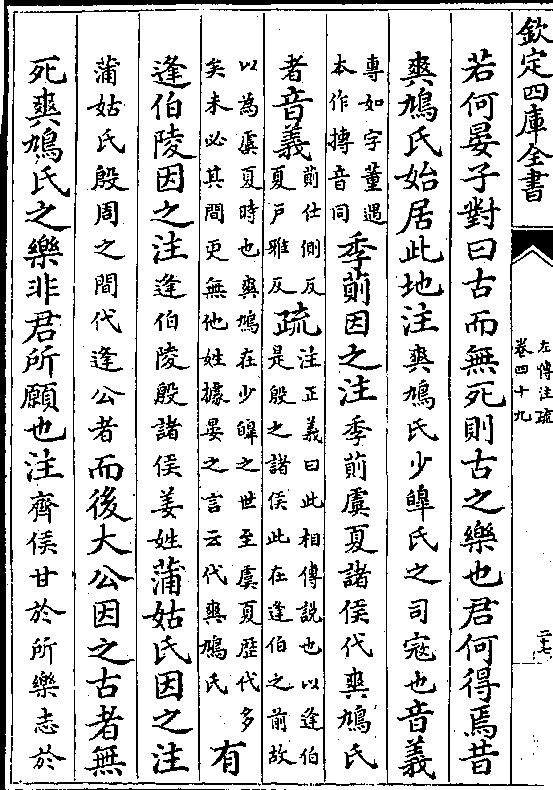 欽定四庫全書
左傳注疏
卷四十九
二十七
若何晏子對曰古而無死則古之樂也君何得焉昔
爽鳩氏始居此地注爽鳩氏少皞氏之司寇也音義
專如字董遇
本作摶音同
季萴因之注季萴虞夏諸侯代爽鳩氏
者音義
萴仕側反
夏戶雅反
疏
注正義曰此相傳說也以逢伯
是殷之諸侯此在逢伯之前故
以為虞夏時也爽鳩在少皞之世至虞夏歷代多
矣未必其間更無他姓據晏之言云代爽鳩氏
有
逢伯陵因之注逢伯陵殷諸侯姜姓蒲姑氏因之注
蒲姑氏殷周之間代逢公者而後大公因之古者無
死爽鳩氏之樂非君所願也注齊侯甘於所樂志於